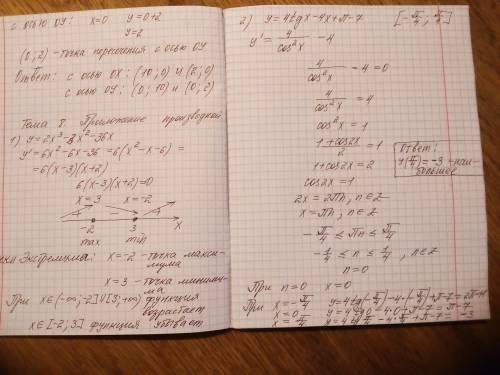 с осью ОУ: x=0 y=0+2
y=2
(0; 2) - точка пересечения с осью ОУ
Ответ: с осью ОХ: (10; 0) и (2; 0)
с осью ОУ: (0; 10) и (0; 2)
Тема 8. Приложение производной
1) y=2x³-3x²-36x
y'=6x²-6x-36=6(x²-x-6)=
=6(x-3)(x+2)
6(x-3)(x+2)=0
x=3 x=-2
-2 3 x
max min
Экстремума: x=-2 - точка макси-
мума
x=3 - точка миниму-
ма
При x∈(-∞;-2]U[3;+∞) функция
возрастает
x∈[-2;3] функция убывает
2) y=4tgx-4x+π-7 [-π/4; π/4]
y'=4/cos²x -4
4/cos²x -4=0
4/cos²x =4
cos²x=1
(1+cos2x)/2 =1
1+cos2x=2
cos2x=1
2x=2πn, n∈Z
x=πn, n∈Z
Ответ:
y(π/4)=-3 - наи-
большее
-π/4 ≤ πn ≤ π/4
-1/4 ≤ n ≤ 1/4, n∈Z
n=0
При n=0 x=0
При x=-π/4 y=4tg(-π/4)-4·(-π/4)+π-7=2π-11
x=0 y=4tg0-4·0+π-7=π-7
x=π/4 y=4tgπ/4-4·π/4+π-7=-3